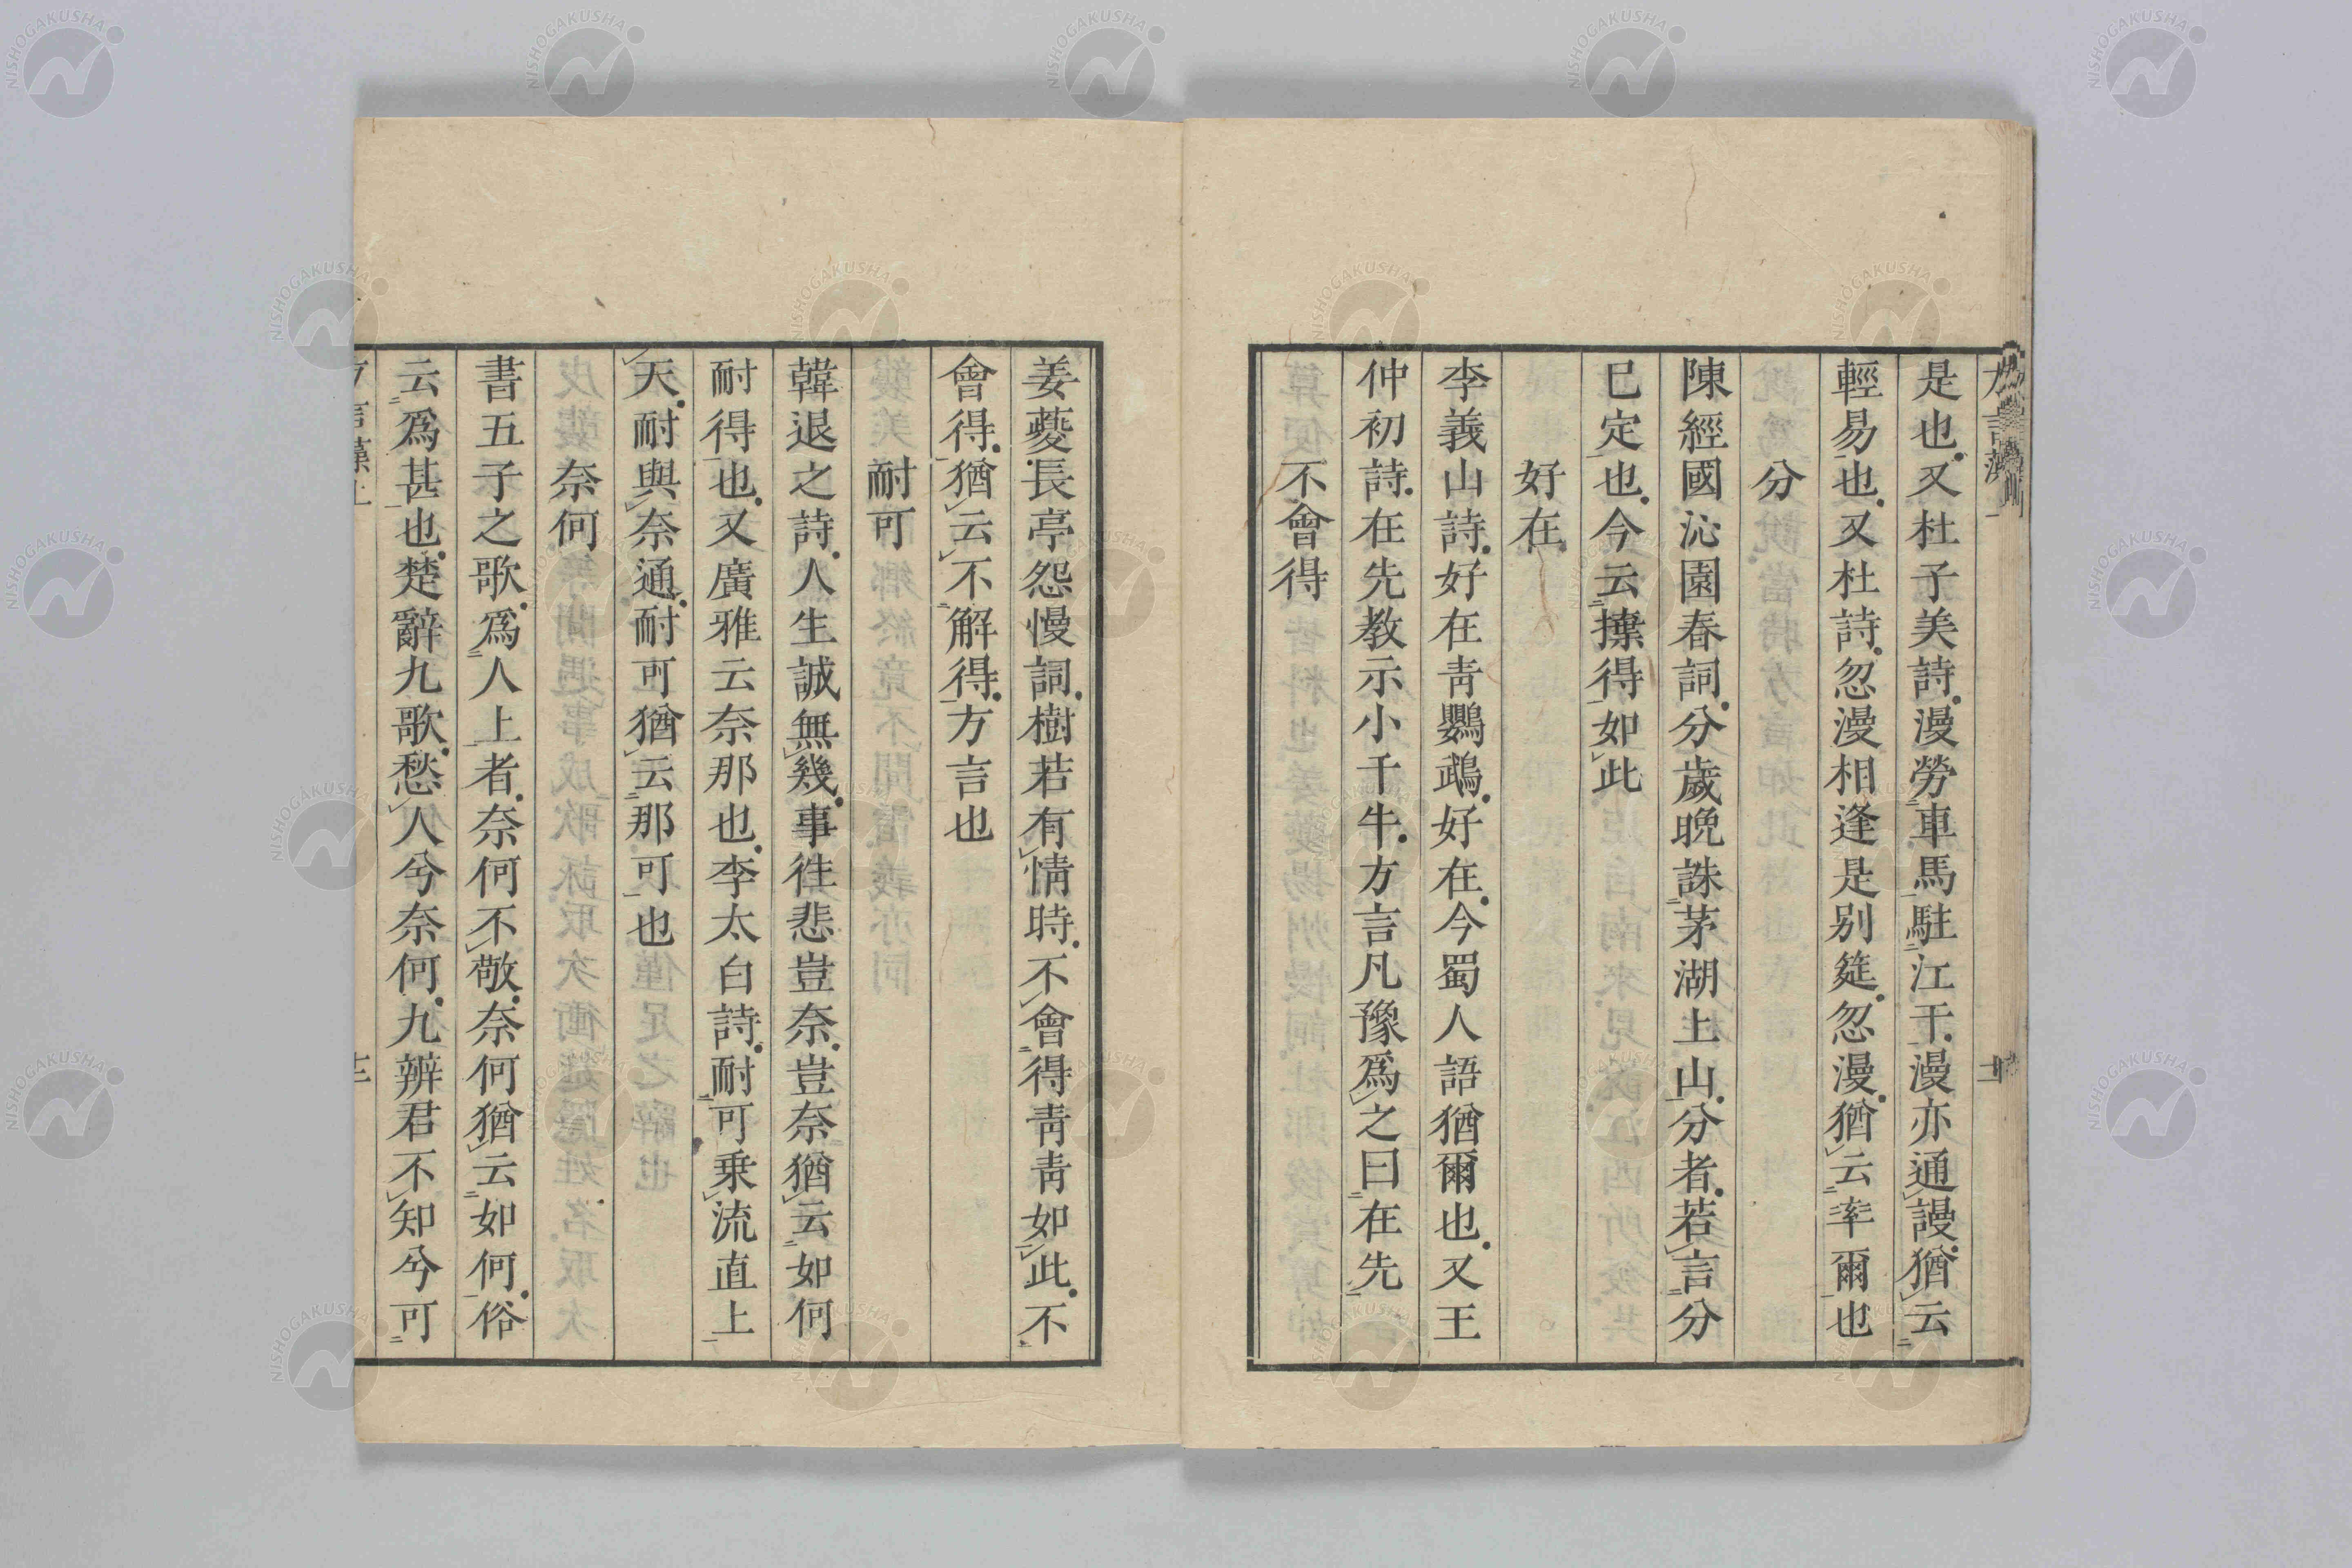 是也又杜子美詩漫勞車馬駐江干漫亦通謾猶云
輕易也又杜詩忽漫相逢是別筵忽漫猶云率爾也
分
陳經國沁園春詞分歲晩誅茅湖上山分者若言分
已定也今云㩧得如此
好在
李義山詩好在青鸚鵡好在今蜀人語猶爾也又王
仲初詩在先教示小千牛方言凡豫爲之曰在先
不會得
姜夔長亭怨慢詞樹若有情時不會得青青如此不
會得猶云不解得方言也
耐可
韓退之詩人生誠無幾事往悲豈奈豈奈猶云如何
耐得也又廣雅云奈那也李太白詩耐可乗流直上
天耐與奈通耐可猶云那可也
奈何
書五子之歌爲人上者奈何不敬奈何猶云如何俗
云爲甚也楚辭九歌愁人兮奈何九辨君不知兮可
NISHOGAKUSHA